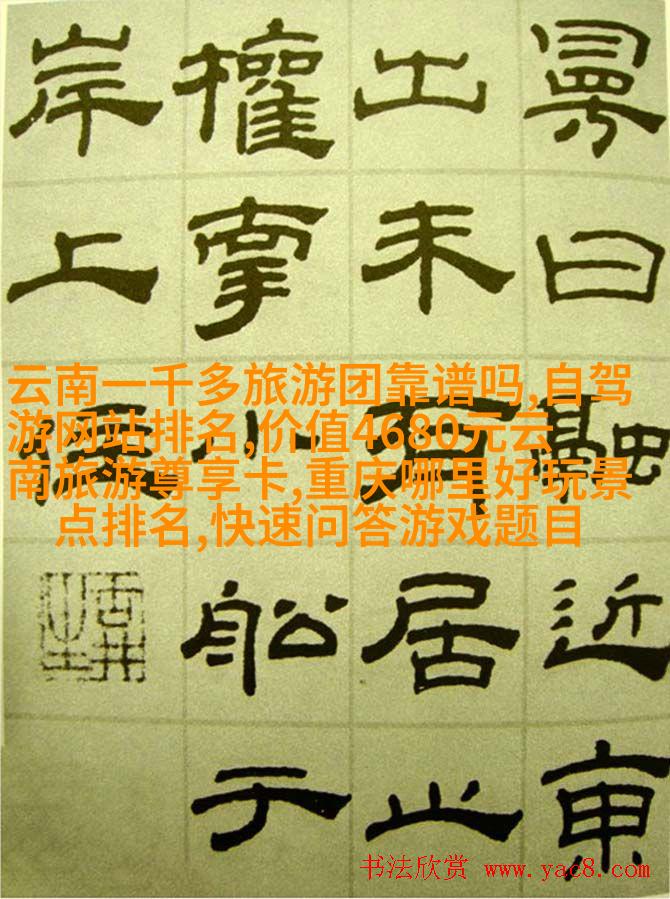 曰融近東
出未有居止
權牽小船于
岸上
云南一千多旅游团靠谱吗,自驾
游网站排名,价值4680元云
南旅游尊享卡,重庆哪里好玩景
点排名,快速问答游戏题目
书法欣赏 www.yac8.com